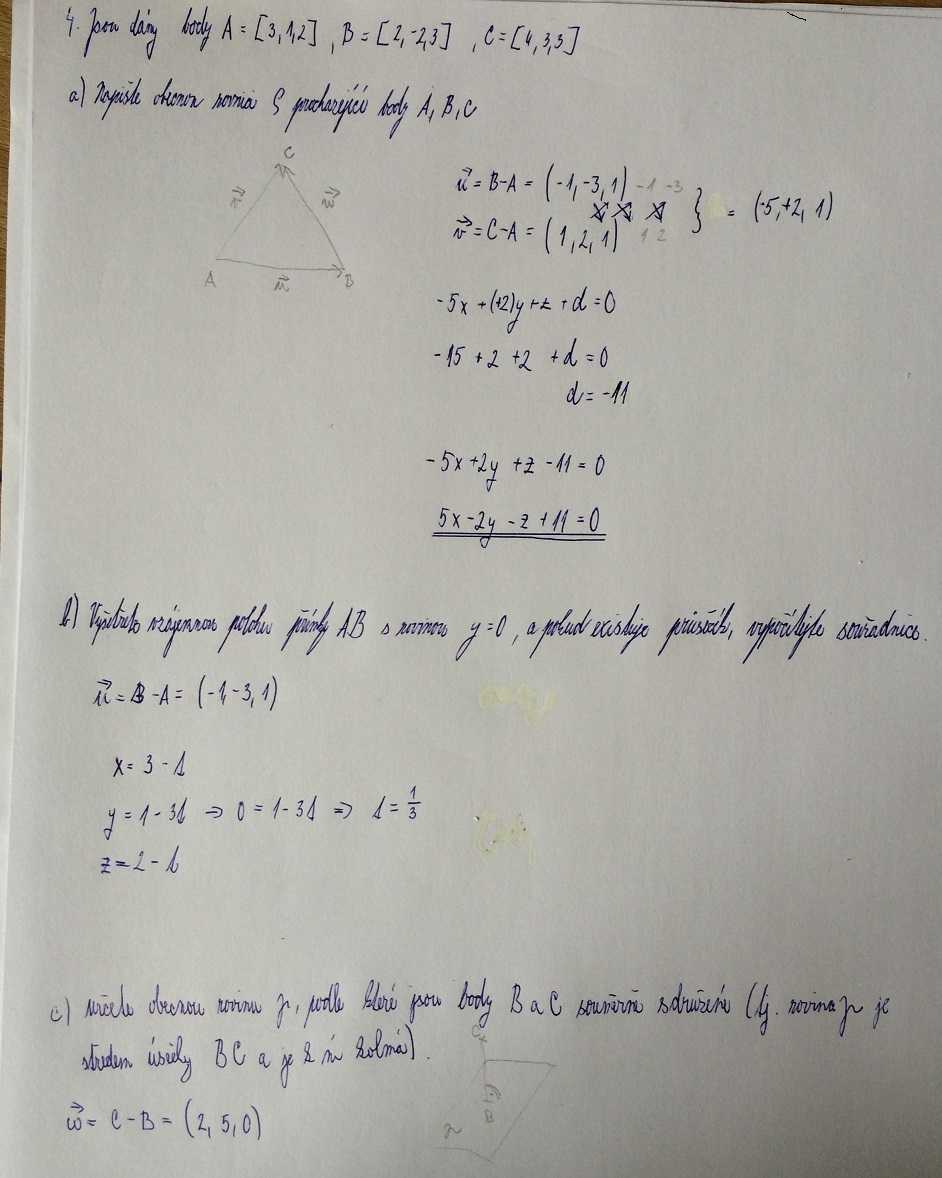 4. Jsou dány body A = [3,1,2], B = [2,-2,3], C = [4,3,3]
a) Napište obecnou rovnici ρ procházející body A, B, C
C
v⃗ w⃗
A u⃗ B
u⃗ = B-A = (-1,-3,1) -1 -3
v⃗ = C-A = (1,2,1) 1 2 } = (-5,+2,1)
-5x +(+2)y +z +d =0
-15 +2 +2 +d =0
d = -11
-5x +2y +z -11 =0
5x -2y -z +11 =0
b) Vyšetřete vzájemnou polohu přímky AB s rovinou y=0, a pokud existuje průsečík, vypočítejte souřadnice.
u⃗ = B-A = (-1,-3,1)
x = 3 - s
y = 1 - 3s => 0 = 1-3s => s = 1/3
z = 2 - s
c) určete obecnou rovinu, podle které jsou body B a C souměrně sdruženi (tj. rovina je
středem úsečky BC a je k ní kolmá).
w⃗ = C-B = (2,5,0)